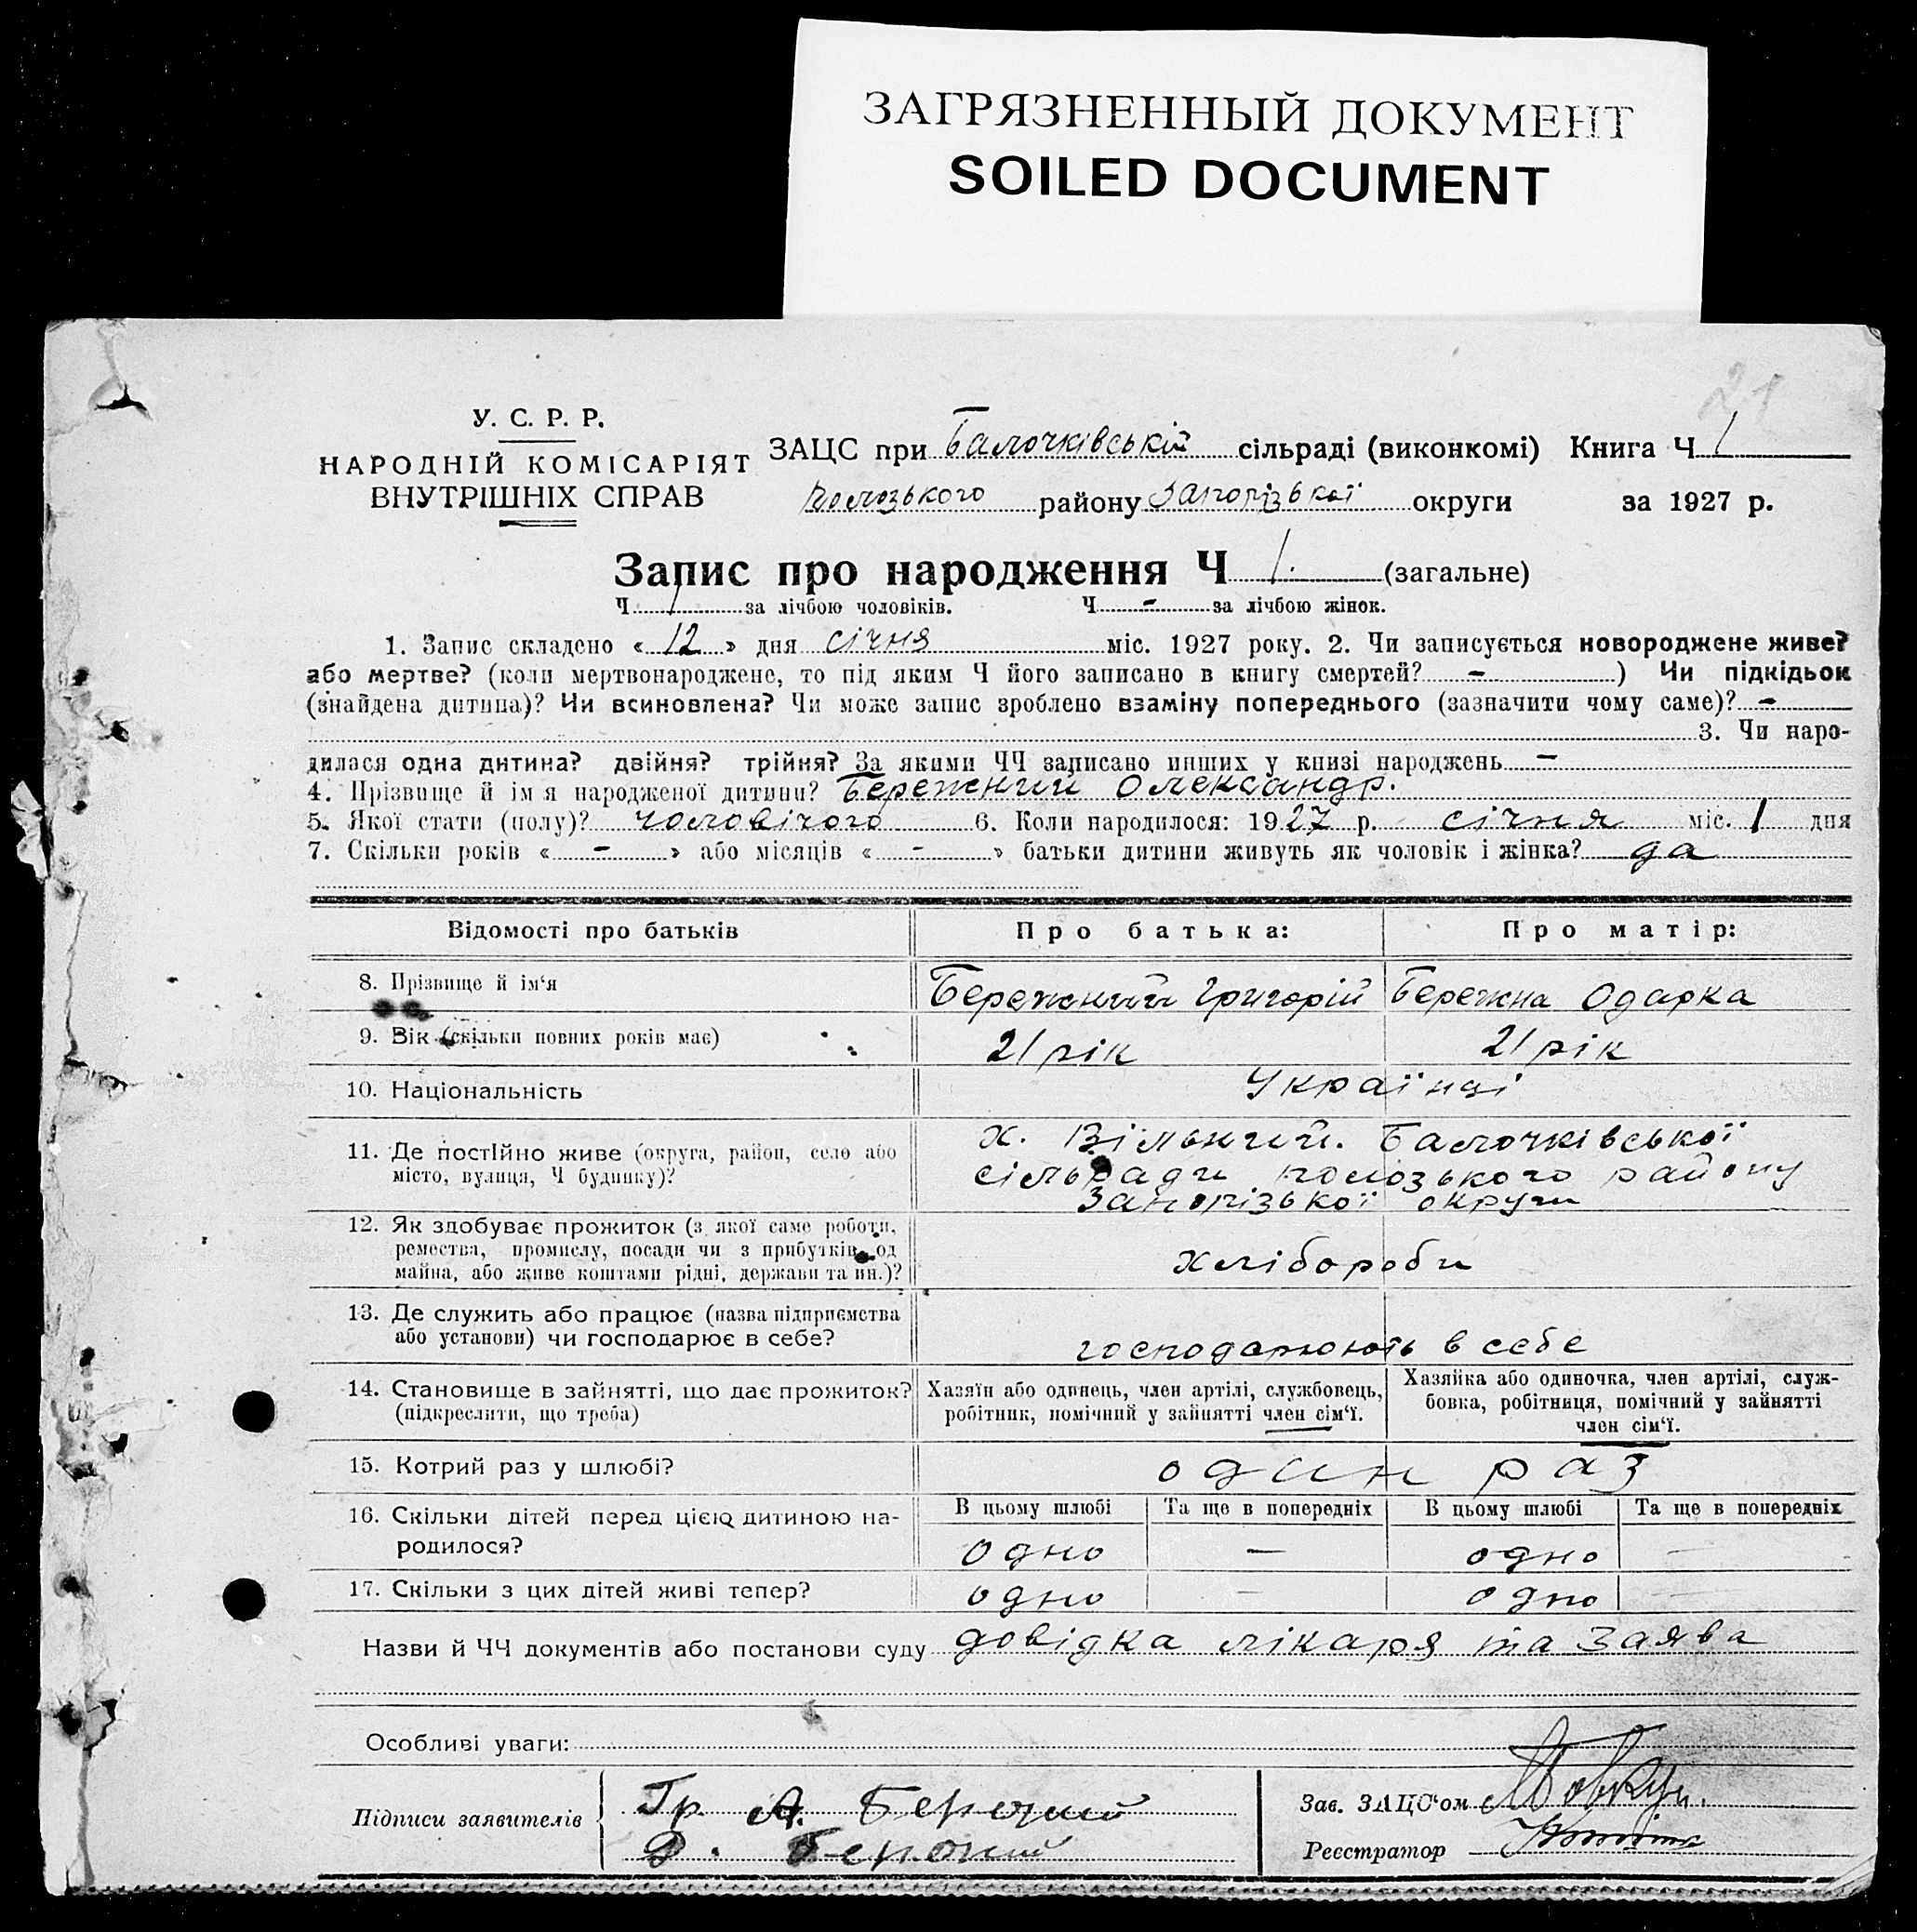 ЗАГРЯЗНЕННЫЙ ДОКУМЕНТ
SOILED DOCUMENT
21
У. С. Р. Р.
НАРОДНІЙ КОМІСАРІЯТ
ВНУТРІШНІХ СПРАВ
ЗАЦС при Балочківській сільраді (виконкомі) Книга Ч 1
Пологзького району Запорізької округи за 1927 р.
Запис про народження Ч 1. (загальне)
Ч 1 за лічбою чоловіків. Ч - за лічбою жінок.
1. Запис складено « 12 » дня січня міс. 1927 року. 2. Чи записується новороджене живе?
або мертве? (коли мертвонароджене, то під яким Ч його записано в книгу смертей? - ) Чи підкідьок
(знайдена дитина)? Чи всиновлена? Чи може запис зроблено взаміну попереднього (зазначити чому саме)? -
3. Чи наро-
дилася одна дитина? двійня? трійня? За якими ЧЧ записано инших у книзі народжень -
4. Прізвище й ім я народженої дитини? Бережний Олександр.
5. Якої стати (полу)? чоловічого 6. Коли народилося: 1927 р. січня міс. 1 дня
7. Скільки років « - » або місяців « - » батьки дитини живуть як чоловік і жінка? да
Відомості про батьків Про батька: Про матір:
8. Прізвище й ім‘я Бережний Григорій Бережна Одарка
9. Вік (скільки повних років має) 21 рік 21 рік
10. Національність Українці
11. Де постійно живе (округа, район, село або
місто, вулиця, Ч будинку)?
х. Вільний. Балочківської
сільради пологзького району
Запорізької округи
12. Як здобуває прожиток (з якої саме роботи,
ремества, промислу, посади чи з прибутків од
майна, або живе коштами рідні, держави та ин.)?
Хлібороби
13. Де служить або працює (назва підприємства
або установи) чи господарює в себе?
господарюють в себе
14. Становище в зайнятті, що дає прожиток?
(підкреслити, що треба)
Хазяїн або одинець, член артілі, службовець,
робітник, помічний у зайнятті член сім‘ї.
Хазяйка або одиночка, член артілі, служ-
бовка, робітниця, помічний у зайнятті
член сім‘ї.
15. Котрий раз у шлюбі? один раз
16. Скільки дітей перед цією дитиною на-
родилося?
В цьому шлюбі Та ще в попередніх В цьому шлюбі Та ще в попередніх
одно — одно —
17. Скільки з цих дітей живі тепер? одно — одно —
Назви й ЧЧ документів або постанови суду довідка лікаря та заява
Особливі уваги:
Підписи заявителів
Гр. А.
Д.
Зав. ЗАЦС‘ом
Реєстратор